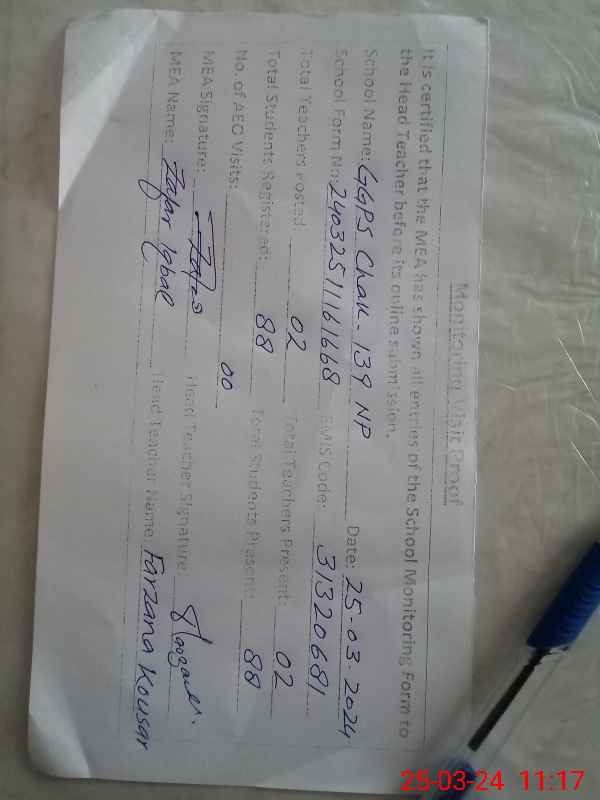 Monitoring Visit Proof
It is certified that the MEA has shown all entries of the School Monitoring Form to
the Head Teacher before its online submission.
School Name: GGPS Chak-139 NP Date: 25-03-2024
School Form No: 24032511161668 EMIS Code: 31320681
Total Teachers Posted 02 Total Teachers Present: 02
Total Students Registered: 88 Total Students Present: 88
No. of AEO Visits: 00
MEA Signature: Head Teacher Signature
MEA Name: Zafar Iqbal Head Teacher Name: Farzana Kousar
25-03-24 11:17